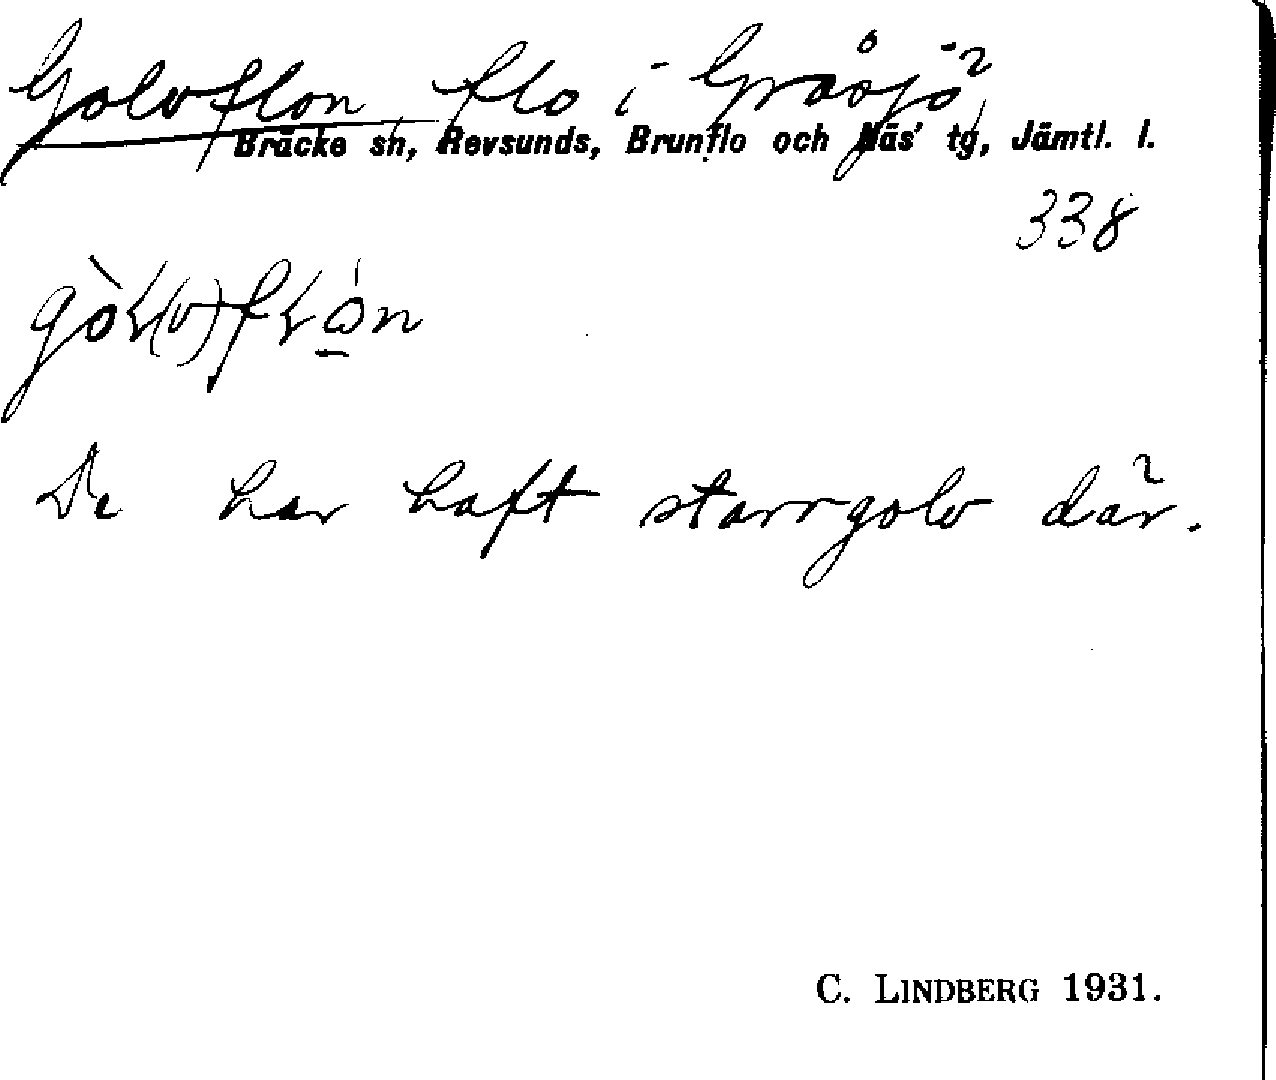 Golvflon flo i Gråsjö,
Bräcke sn, Revsunds, Brunflo och Näs' tg, Jämtl. l.
338
De har haft starrgolv där.
C. LINDBERG 1931.